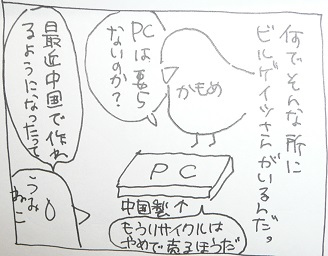 何でそんな所に
ビルゲイツさんがいるんだ。
かもめ
PCは要ら
ないのか？
最近中国で作れ
るようになったって
うみ
ねこ
PC
中国製↑
もうリサイクルは
やめて売るほうだ